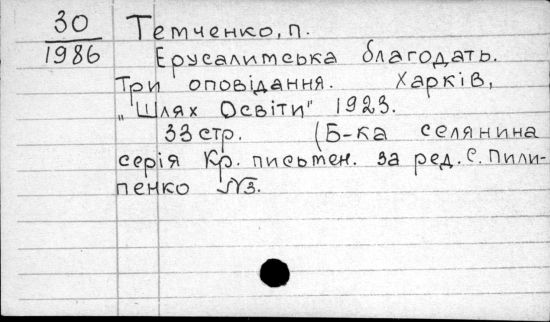 30
1986
Темченко, П.
Єрусалимська благодать.
Три оповідання. Харків,
„Шлях Освіти" 1923.
33 стр. (Б-ка селянина
серія Кр. письмен. за ред. С. Пили-
пенко №3.